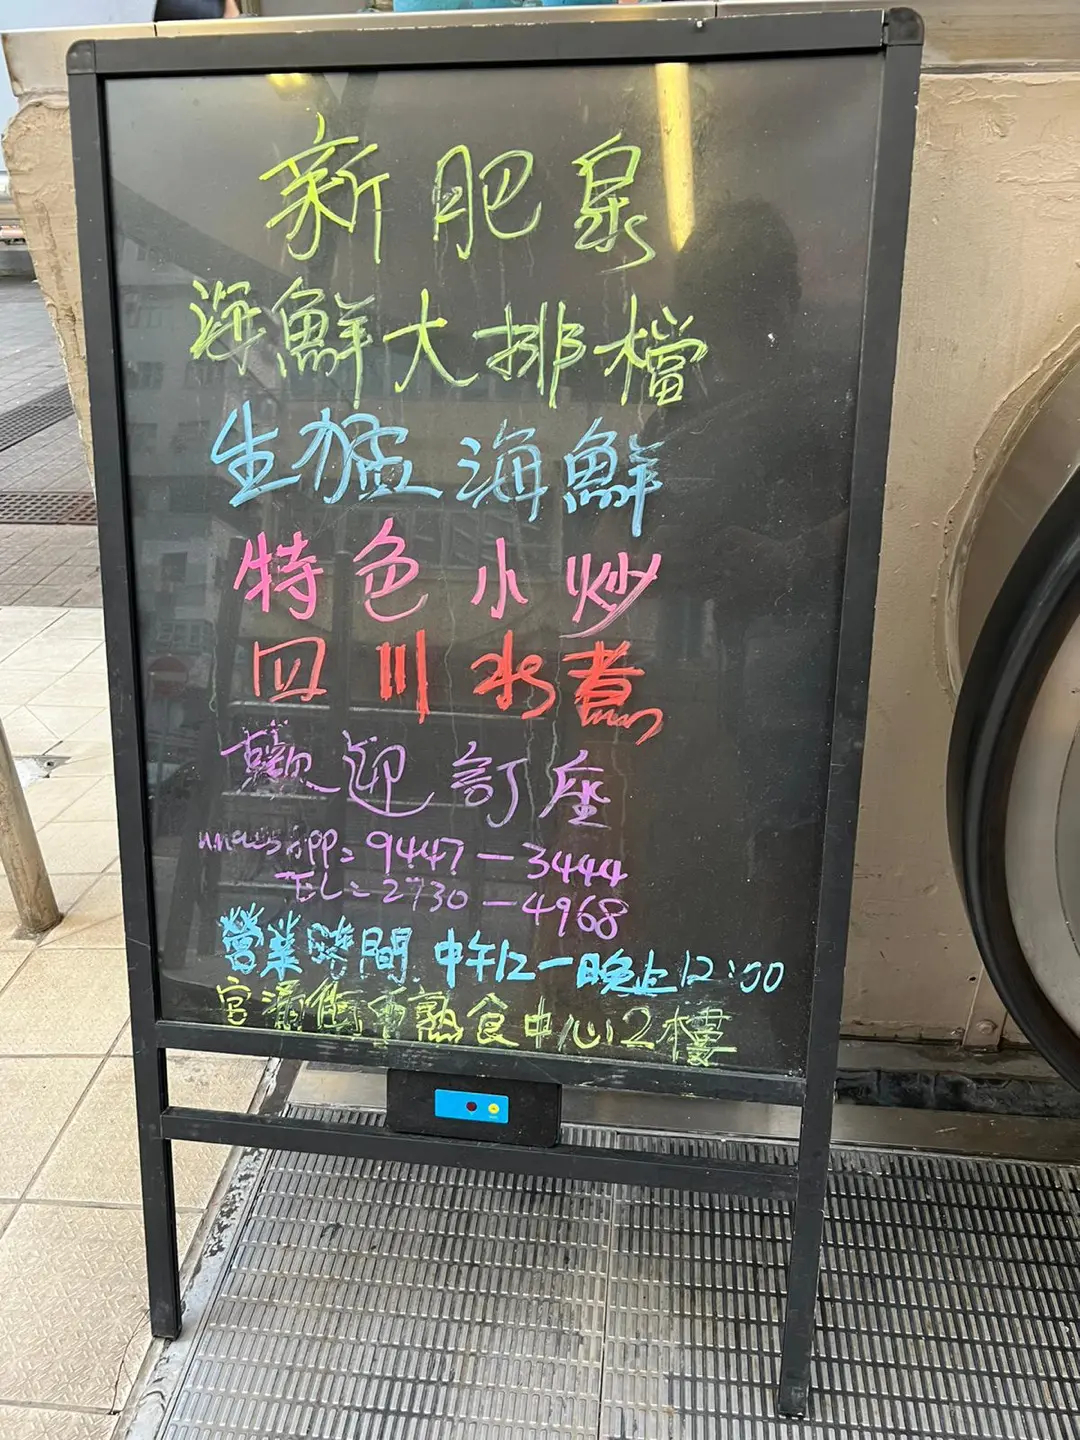 新肥泉
海鮮大排檔
生猛海鮮
特色小炒
四川水煮
歡迎訂座
whatsapp=9447-3444
TEL=2730-4968
營業時間 中午12-晚上12:00
官涌街市熟食中心2樓